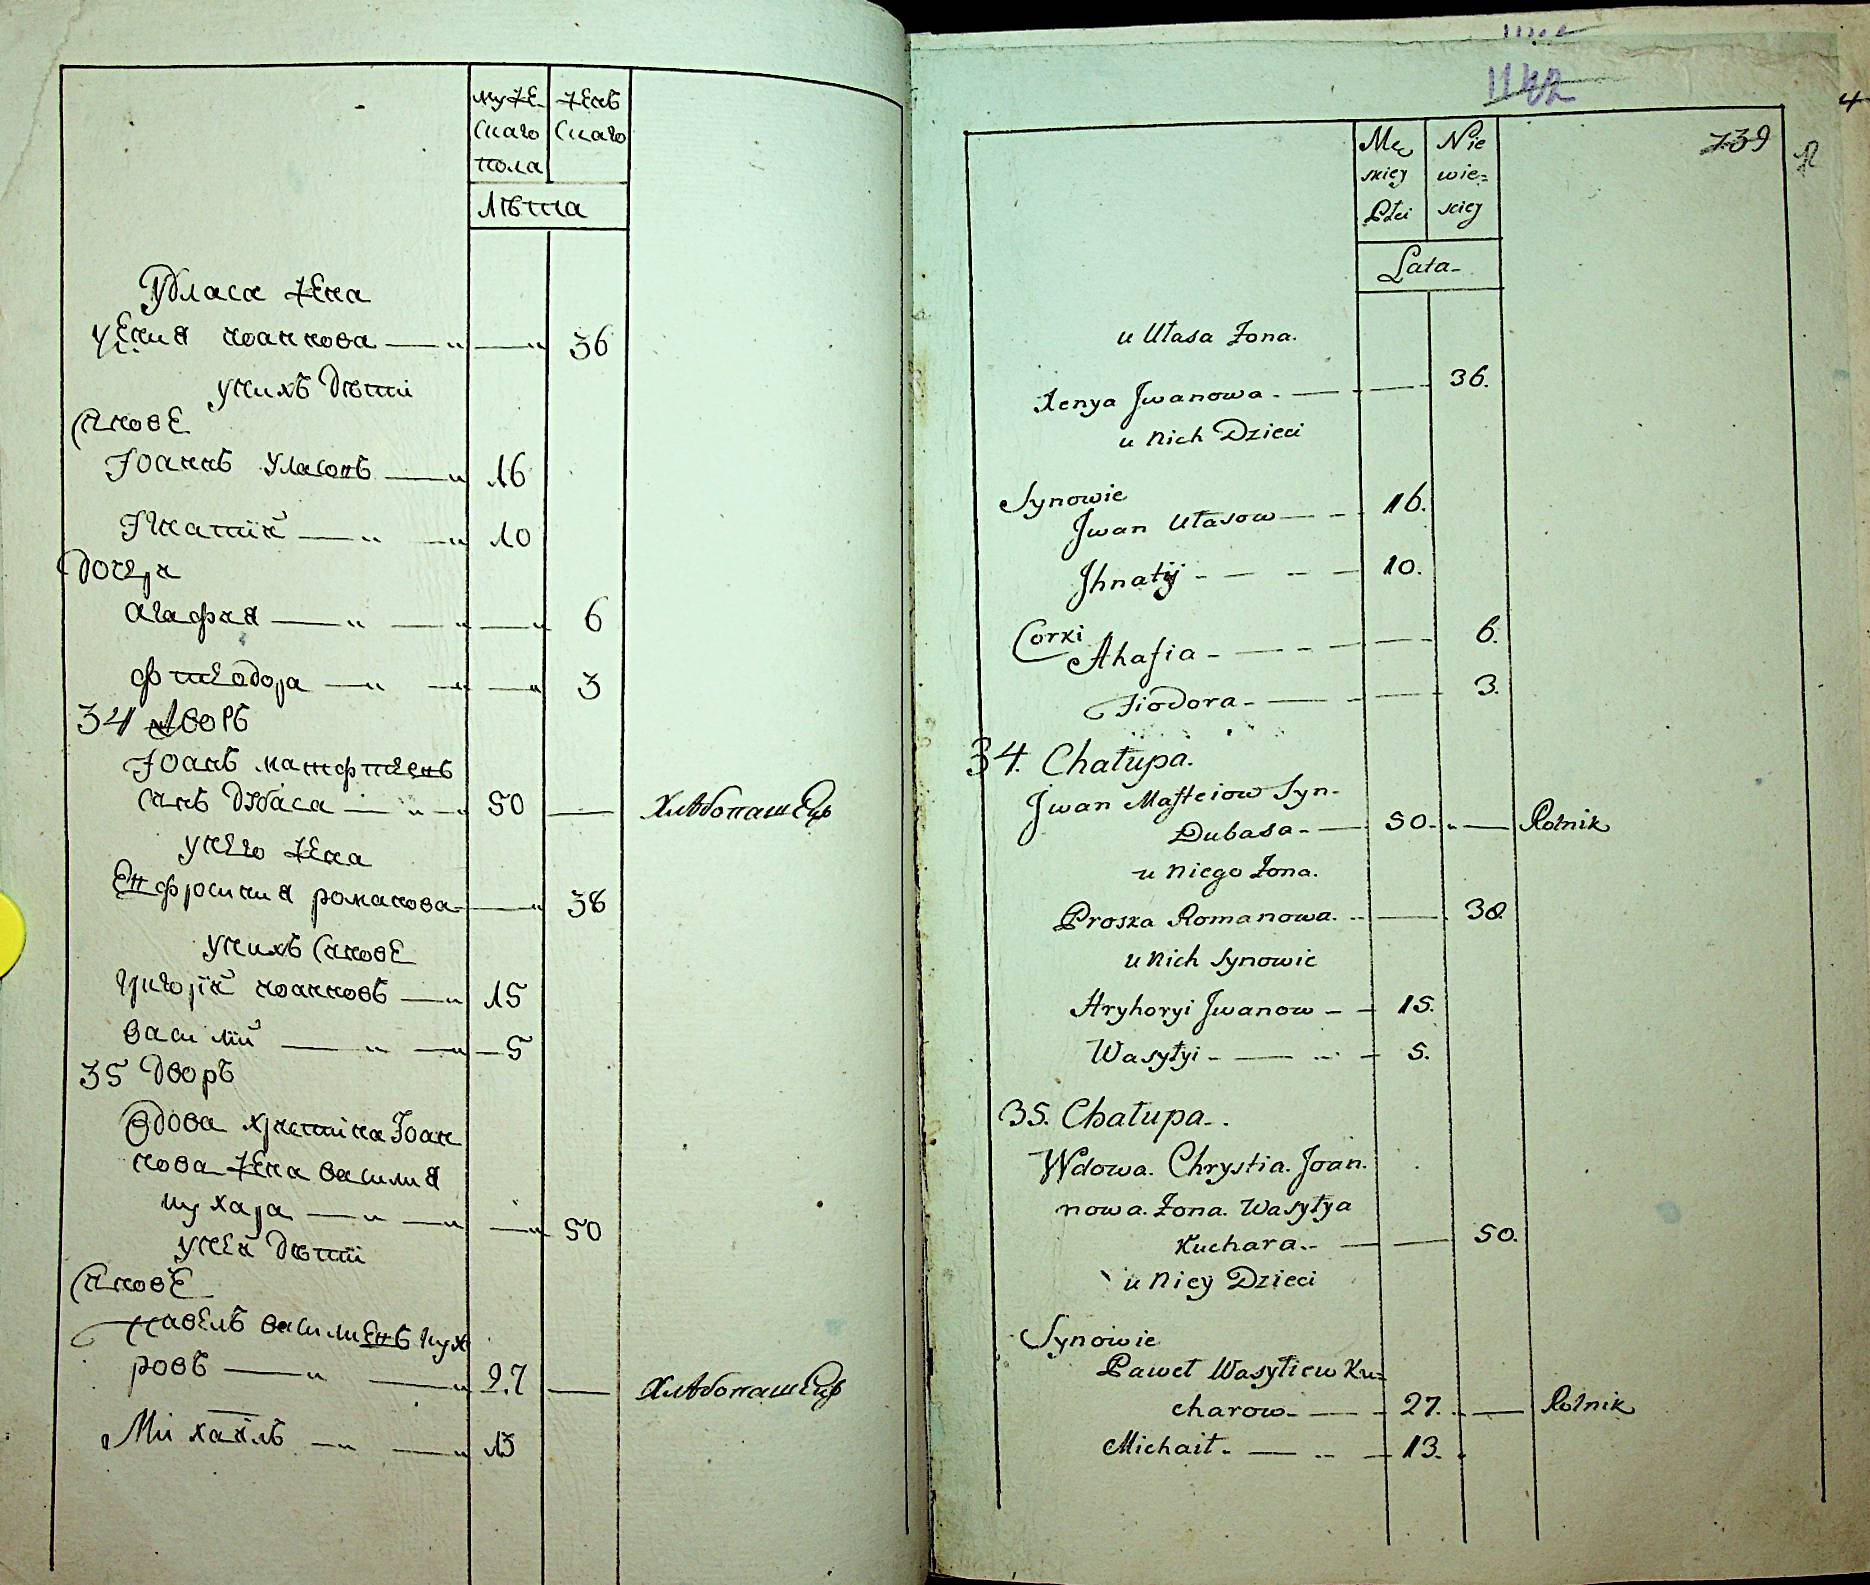 муже- женъ
скаго скаго
пола
лѣта
У Власа жена
Ѯения иоаннова — „ — „ 36
у нихъ дѣти
Сынове
Іоаннъ Уласовъ — „ 16
Игнатій — „ — „ 10
дочеря
Агафия — „ — „ — „ 6
Фтеодора — „ — „ — „ 3
34 дворъ
Іоанъ матфтеевъ
сынъ дубаса — „ — 50 — Хлѣбопашецъ
у него жена
Евфросиния романова — „ 38
у нихъ сынове
григорій иоанновъ — „ 15
василій — „ — „ 5
35 дворъ
Вдова христина Іоан
нова жена василия
кухара — „ — „ — „ 50
у ней дѣти
Сынове
павелъ василиевъ кух
ровъ — „ — „ 27 — Хлѣбопашецъ
Михаилъ — „ — „ 13
1142
739
Mę Nie
skiey wie=
Płci skiey
Lata
u Ułasa Żona.
Xenya Jwanowa. — — 36.
u nich Dzieci
Synowie
Jwan Ułasow — - 16.
Jhnatij - — - - — 10.
Corki
Ahafia - — - - — 6.
Fiodora - — - — 3.
34. Chałupa.
Jwan Mafteiow Syn-
Dubasa - — 50. „ — Rolnik
u niego Żona.
Proska Romanowa. - — 38
u nich Synowie
Hryhoryi Jwanow - - 15.
Wasyłyi - — - - 5.
35. Chałupa.
Wdowa. Chrystia. Joan.
nowa. Żona. Wasyłya
Kuchara. - — — 50.
u Niey Dzieci
Synowie
Paweł Wasyłiew Ku=
charow - — - 27. - — Rolnik
Michaił. - — - - — 13.